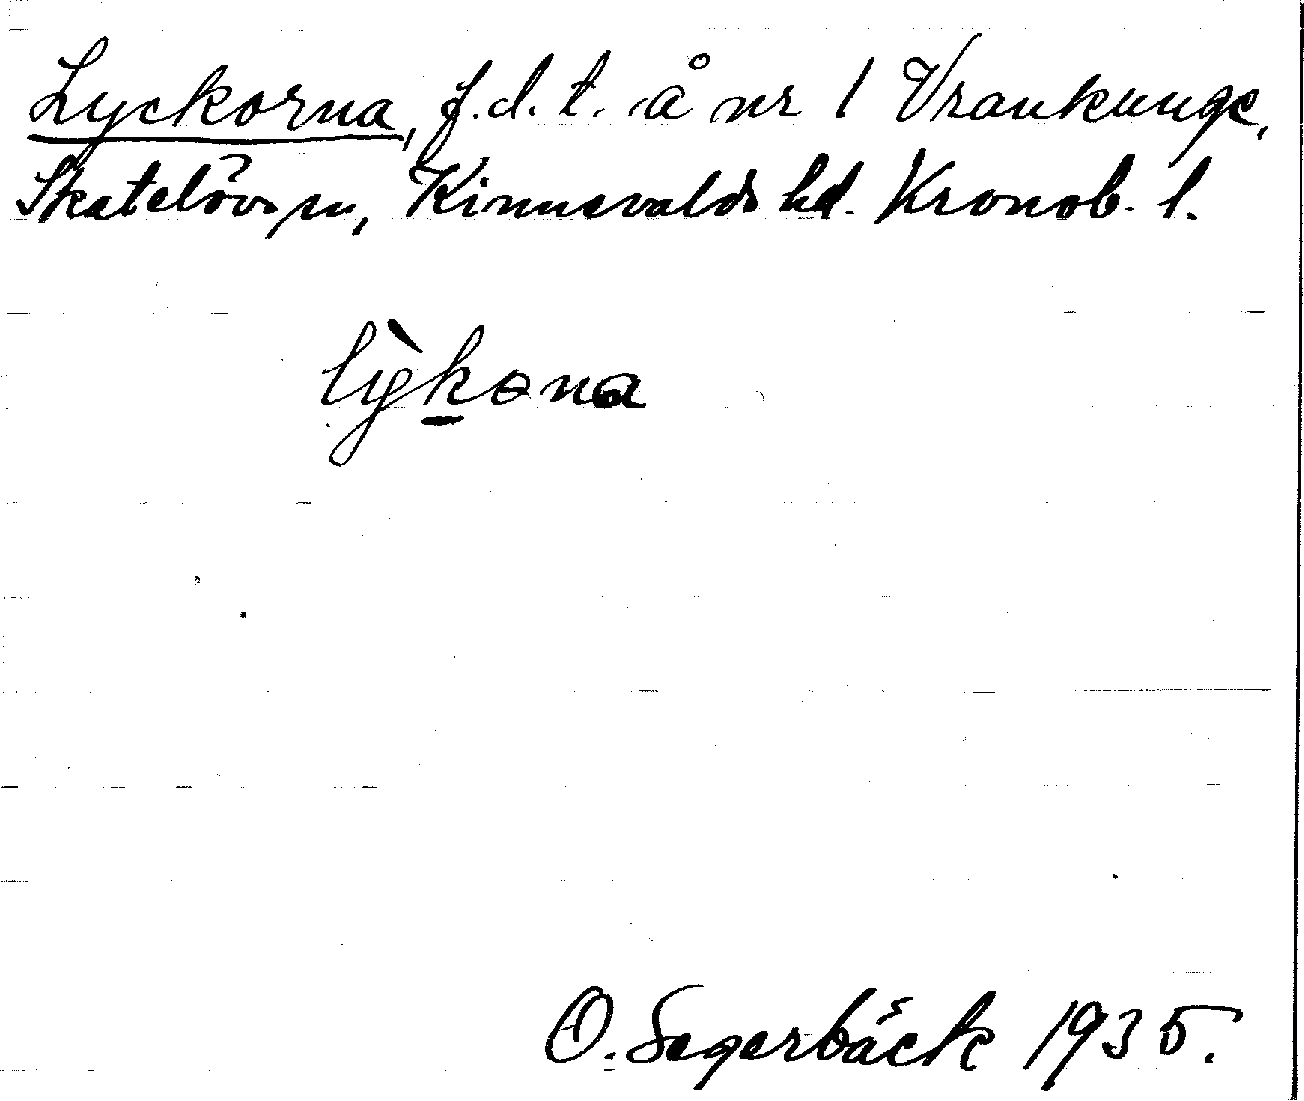 Lyckorna, f.d.t. å nr 1 Vrankunge,
Skatelövs sn, Kinnevalds hd. Kronob. l.
lỳkəna
O. Segerbäck 1935.